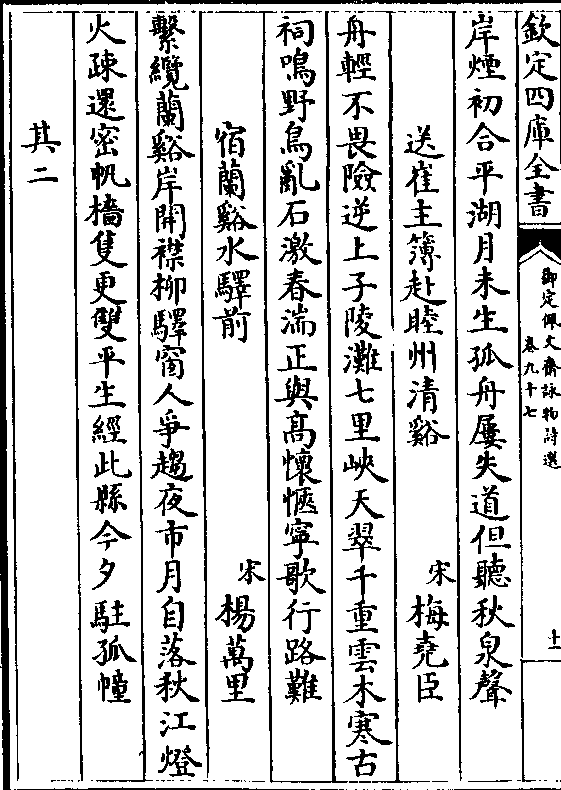 欽定四庫全書
御定佩文齋詠物詩選
卷九十七
十一
岸煙初合平湖月未生孤舟屢失道但聽秋泉聲
送崔主簿赴睦州清谿
宋梅堯臣
舟輕不畏險逆上子陵灘七里峽天翠千重雲木寒古
祠鳴野鳥亂石激春湍正與高懷愜寧歌行路難
宿蘭谿水驛前
宋楊萬里
繫纜蘭谿岸開襟柳驛窗人爭趨夜市月自落秋江燈
火疎還密帆檣隻更雙平生經此縣今夕駐孤幢
其二